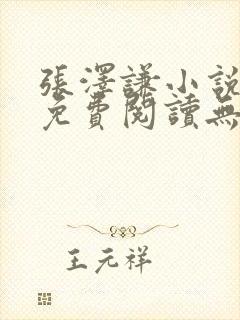 張澤謙小說
免費閱讀無
王元祥